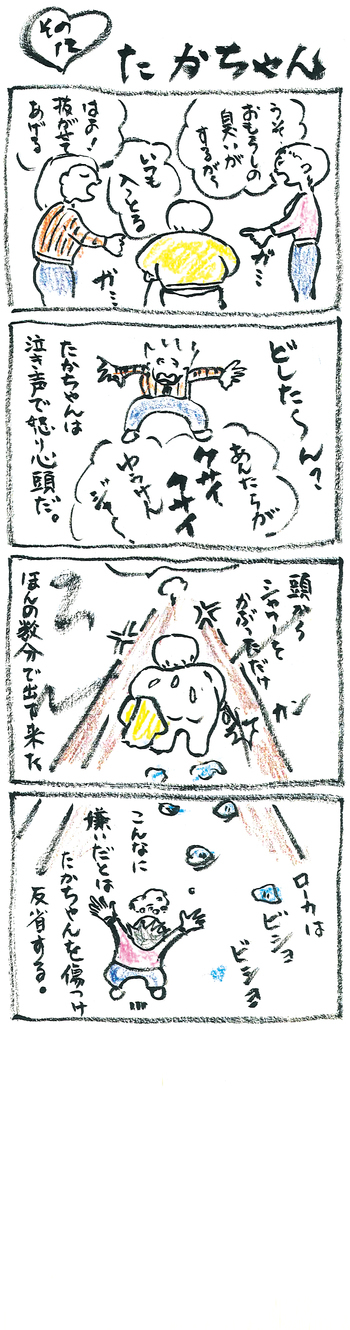 その
たかちゃん
うっそ
おもらしの
臭いが
するがら
ガ…
いつも
入っとる
はよ!
抜がせて
あげる
ガ…
どした〜ん?
あんたらが
クサイ
クサイ
ゆうけん
ジャ〜
たかちゃんは
泣き声で怒り心頭だ。
頭から
シャワーを
かぶっただけ
カン
ほんの数分で出て来た
ローカは
ビショ
ビショ
こんなに
嫌いだとは
たかちゃんを傷つけ
反省する。